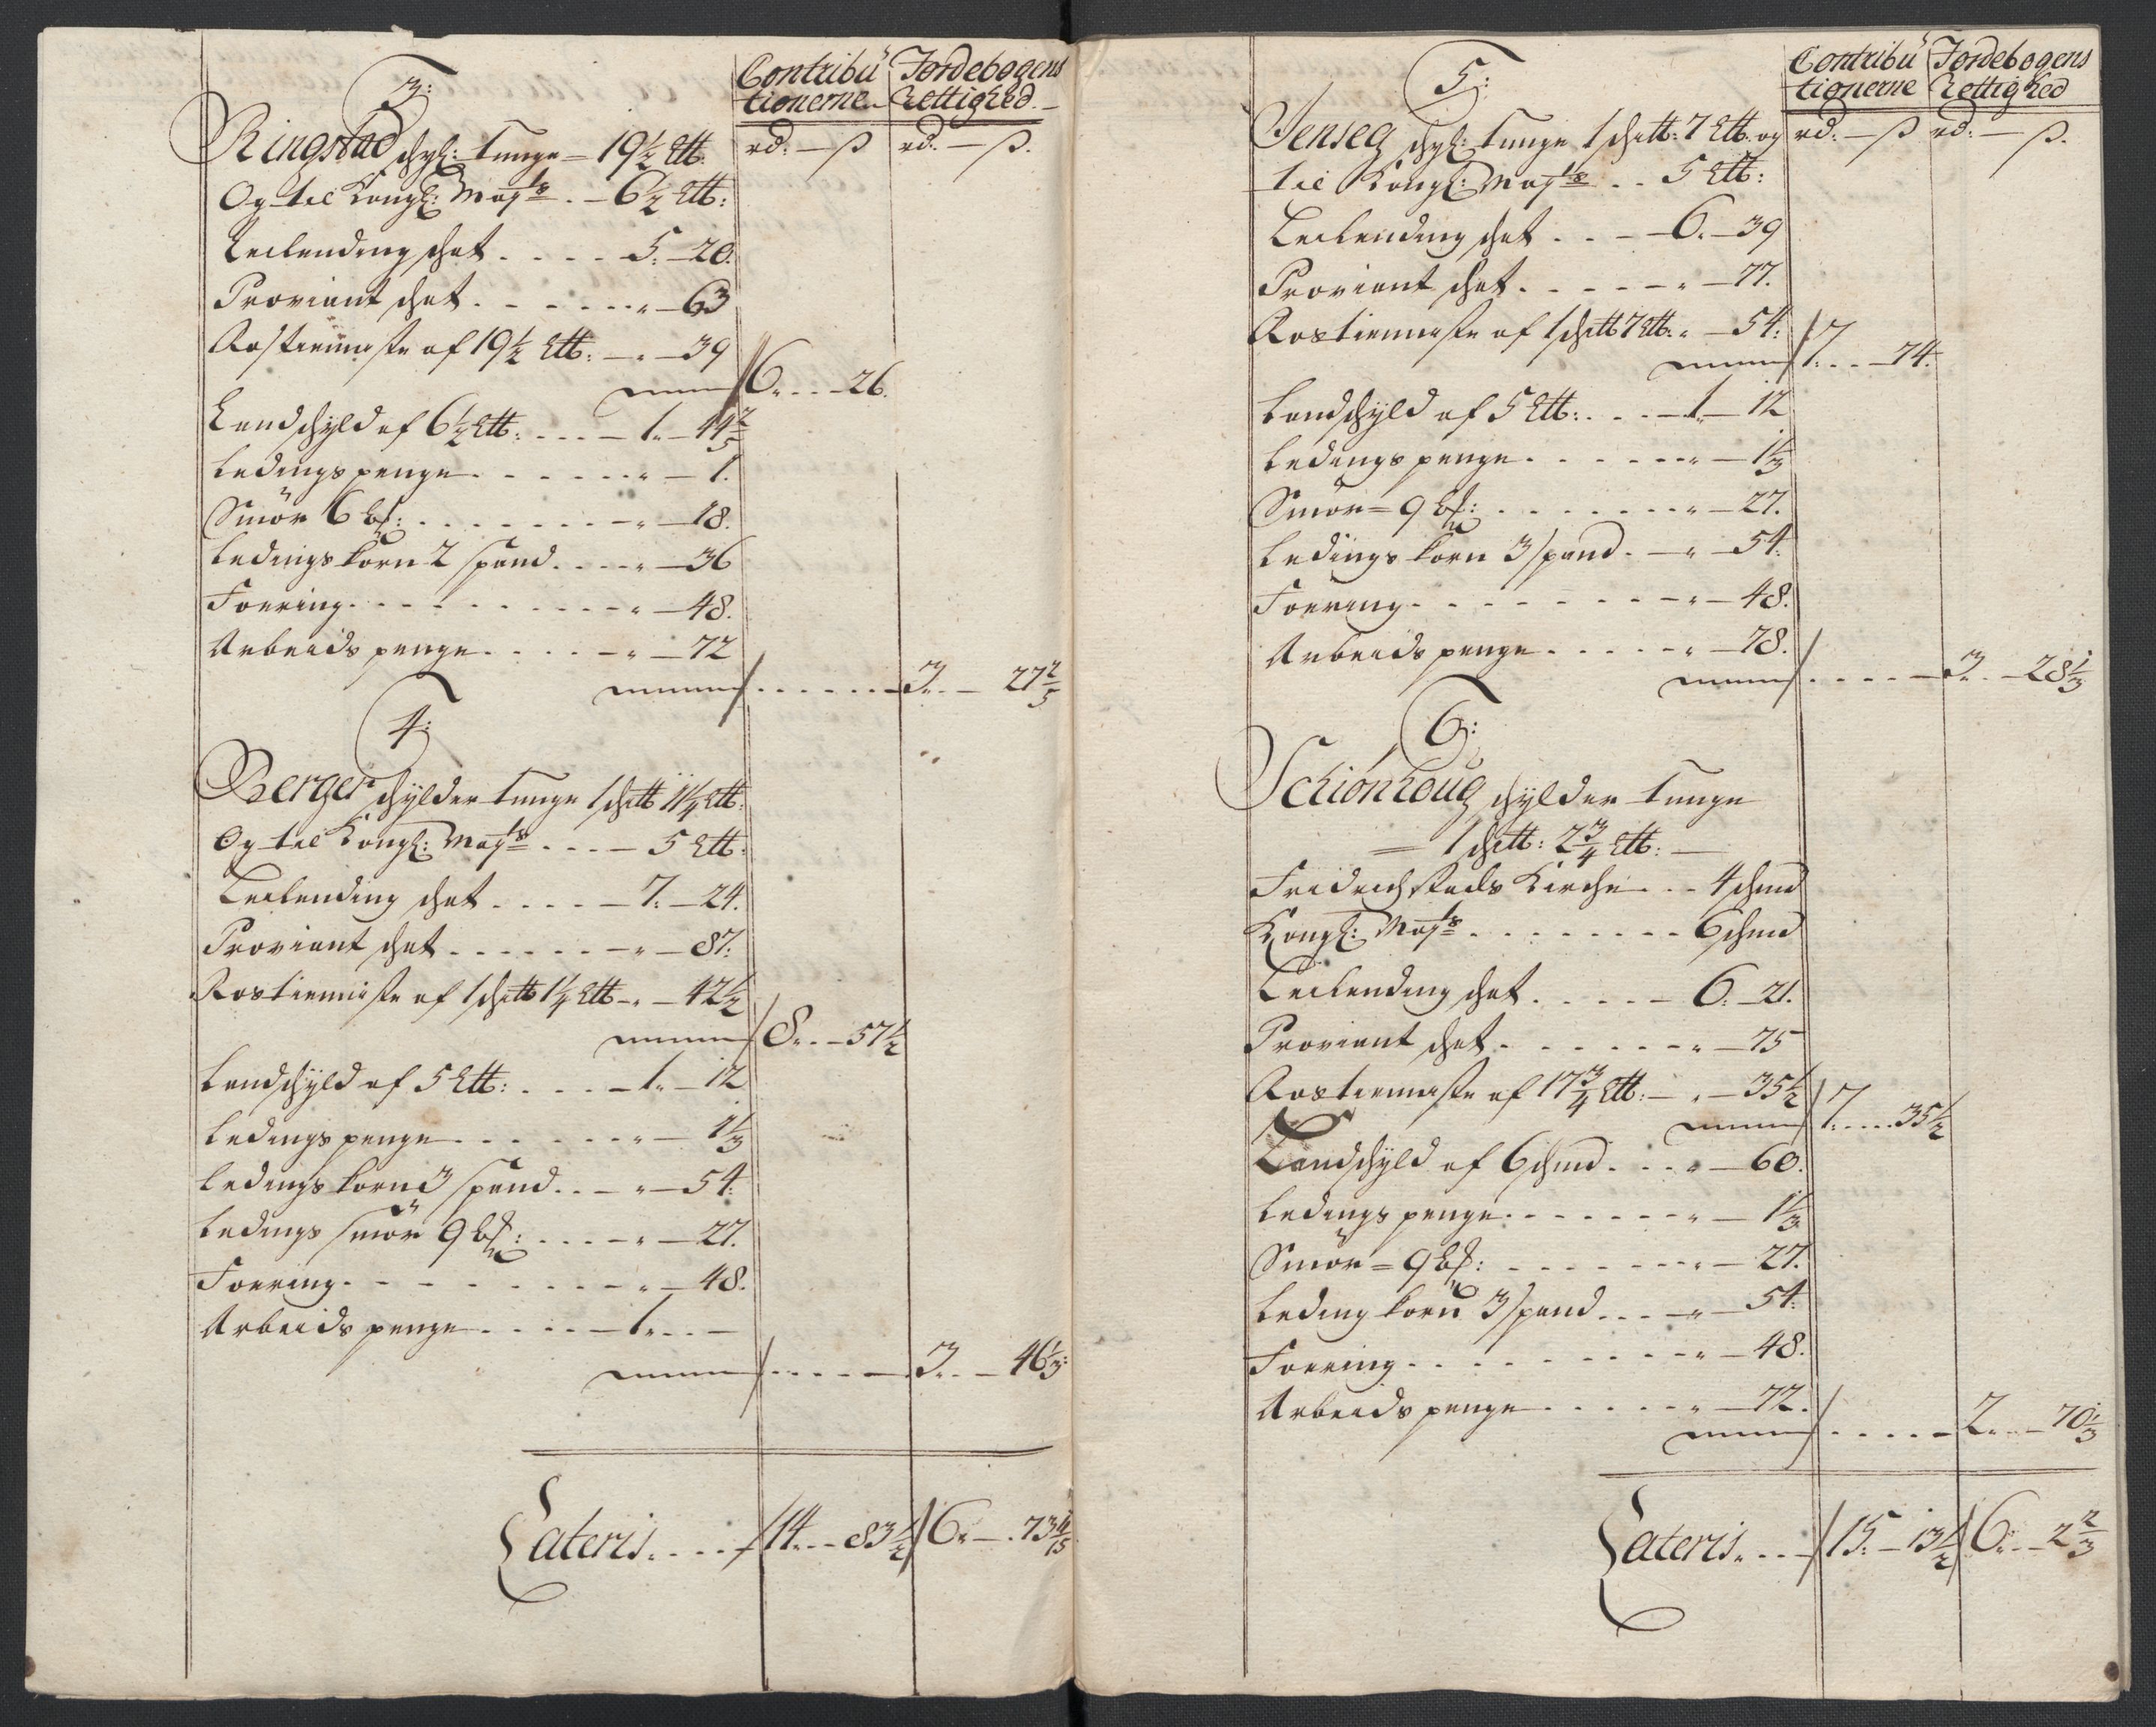 Contribu Jordebogens
tionerne Rettighed
3:
Ringstad schyl: tunge 19½ Ltt: rd: ß rd: ß.
Og til Kongl: Mayts . 6½ Ltt:
Leilending schat . . . . 5: 20.
Proviant schat . . . . . . „ 63
Rostieniste af 19½ Ltt: „ 39
6. . . 26.
Landschyld af 6½ Ltt: . . . 1. 44 2/5
Ledings penge . . . . . . „ 1.
Smör 6 . . . . . . . „ 18.
Ledings korn 2 spand . . . . „ 36
Foering . . . . . . . . . . „ 48.
Arbeids penge . . . . . „ 72
. . . . . . . 3. 27 2/5
4:
Berger schylder tunge 1 schtt 1¼ Ltt:
Og til Kongl: Mayts . . . 5 Ltt:
Leilending schat . . . . 7. 24.
Proviant schat . . . . . . „ 87.
Rostieniste af 1 schtt 1¼ Ltt „ 42½
8. . 57½
Landschyld af 5 Ltt: . . . . 1. 12
Ledings penge . . . . . . „ 1⅓
Ledings korn 3 spand . . „ 54.
Ledings smör 9 . . . . „ 27.
Foering . . . . . . . . . „ 48.
Arbeids penge . . . . 1. . .
. . . . . 3. . 46⅓:
Lateris. . . . 14. . . 83½ 6. . 73 11/15
Contribu Jordebogens
tionerne Rettighed
5:
Jenseg schyl: tunge 1 schtt: 7 Ltt: og rd: ß rd: ß.
til Kongl: Mayts . . 5 Ltt:
Leilending schat . . . 6. 39
Proviant schat . . . . . . „ 77.
Rostieniste af 1 schtt 7 Ltt: „ 54.
7. . . 74.
Landschyld af 5 Ltt: . . . 1. 12
Ledings penge . . . . . . „ 1⅓
Smör 9 . . . . . . . „ 27.
Ledings korn 3 spand . „ 54.
Foering . . . . . . . . „ 48.
Arbeids penge . . . . . „ 78.
. . . . . 3. . 28⅓
6:
Schiönhoug schylder tunge
1 schtt: 2¾ Ltt:
Fridrichstads Kirche . . 4 schind
Kongl: Mayts . . . . . . . . 6 schind
Leilending schat . . . . . 6. 21.
Proviant schat . . . . . . . „ 75
Rostieniste af 17¾ Ltt: „ 35½
7. . . . 35½
Landschyld af 6 schind . . . „ 60.
Ledings penge . . . . . . . „ 1⅓
Smör 9 . . . . . . . „ 27.
Leding korn 3 spand . . . „ 54.
Foering . . . . . . . . . „ 48.
Arbeids penge . . . . . „ 72.
. . . . . 2. . . 70⅓
Lateris. . . . 15. 13½ 6. . . 2⅔